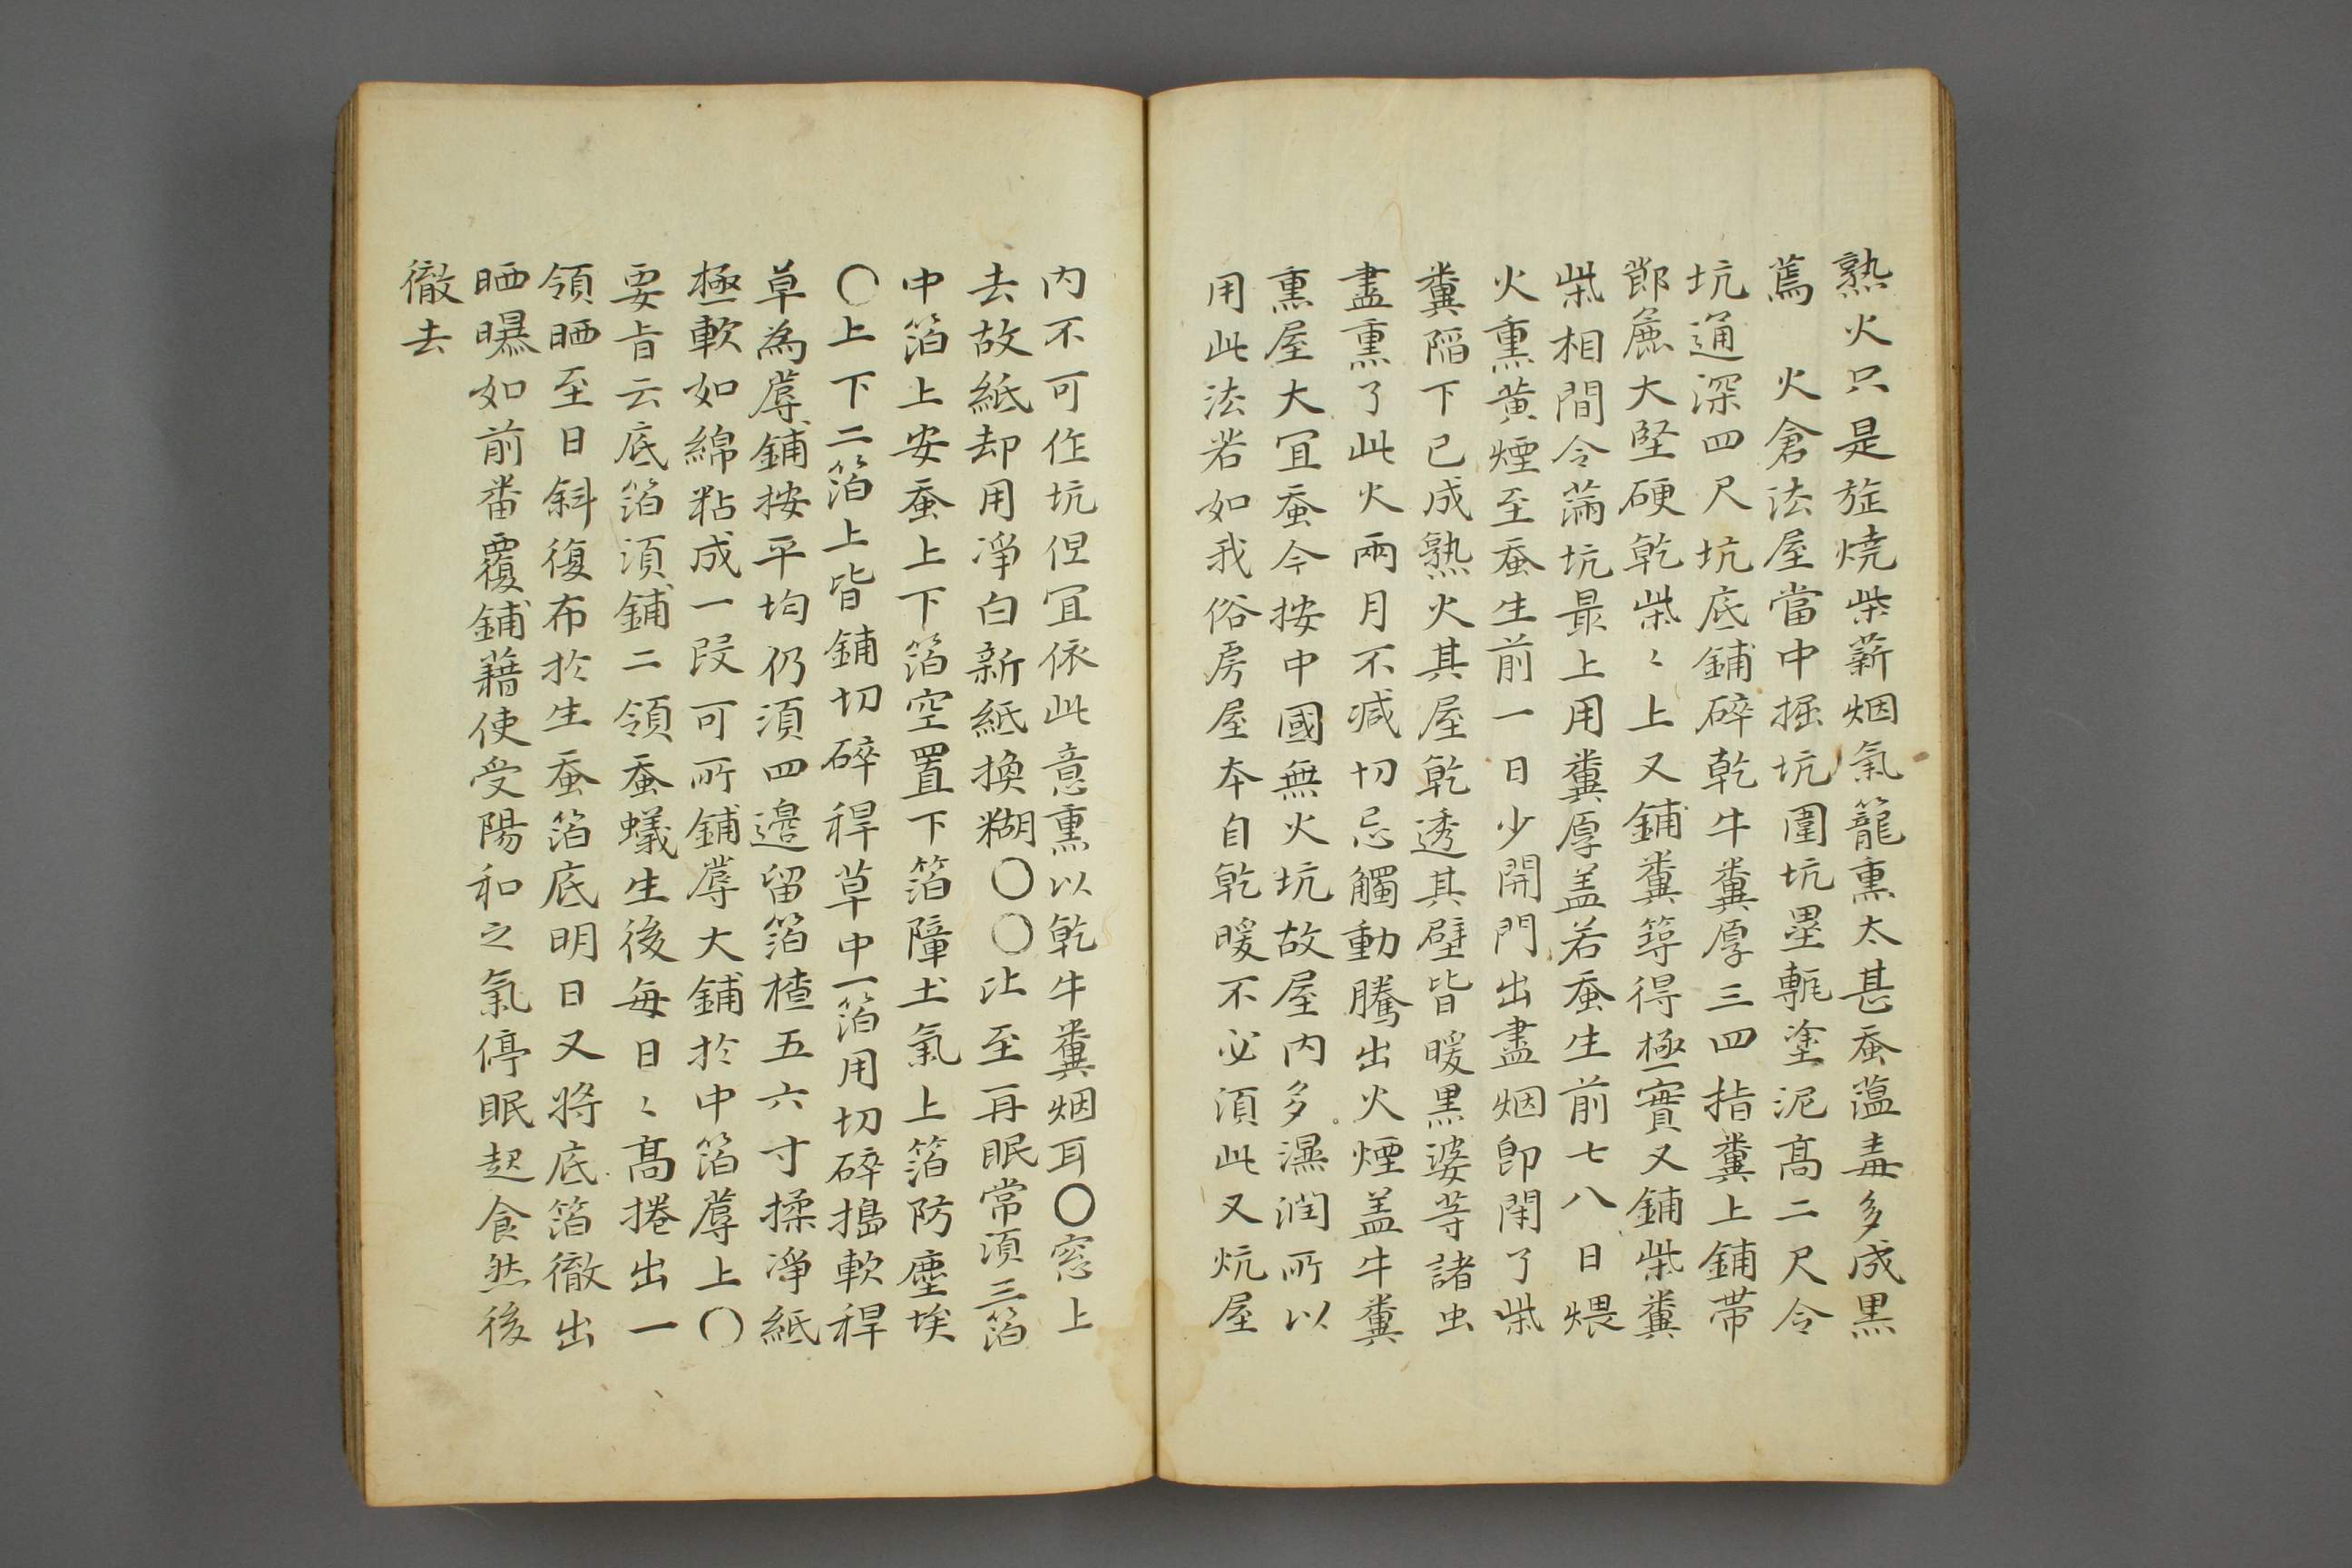 熟火只是旋燒柴薪烟氣籠熏太甚蚕薀毒多成黒
蔫　火倉法屋當中掘坑圍坑壘甎塗泥高二尺令
坑通深四尺坑底鋪碎乾牛糞厚三四指糞上鋪帶
節麄大堅硬乾柴〻上又鋪糞築得極實又鋪柴糞
柴相間令滿坑最上用糞厚盖若蚕生前七八日煨
火熏黄煙至蚕生前一日少開門出盡烟卽閉了柴
糞陷下已成熟火其屋乾透其壁皆暖黒婆等諸虫
盡熏了此火兩月不减切忌觸動騰出火煙盖牛糞
熏屋大冝蚕今按中國無火坑故屋内多濕潤所以
用此法若如我俗房屋本自乾暖不必湏此又炕屋
内不可作坑但冝依此意熏以乾牛糞烟耳〇窓上
去故紙却用凈白新紙換糊〇〇比至再眠常湏三箔
中箔上安蚕上下箔空置下箔障土氣上箔防塵埃
〇上下二箔上皆鋪切碎稈草中一箔用切碎搗軟稈
草為蓐鋪按平均仍湏四邉留箔楂五六寸揉凈紙
極軟如綿粘成一段可所鋪蓐大鋪於中箔蓐上〇
要旨云底箔湏鋪二領蚕蟻生後每日〻高捲出一
領晒至日斜復布於生蚕箔底明日又將底箔徹出
晒曝如前畨覆鋪藉使受陽和之氣停眠起食然後
徹去